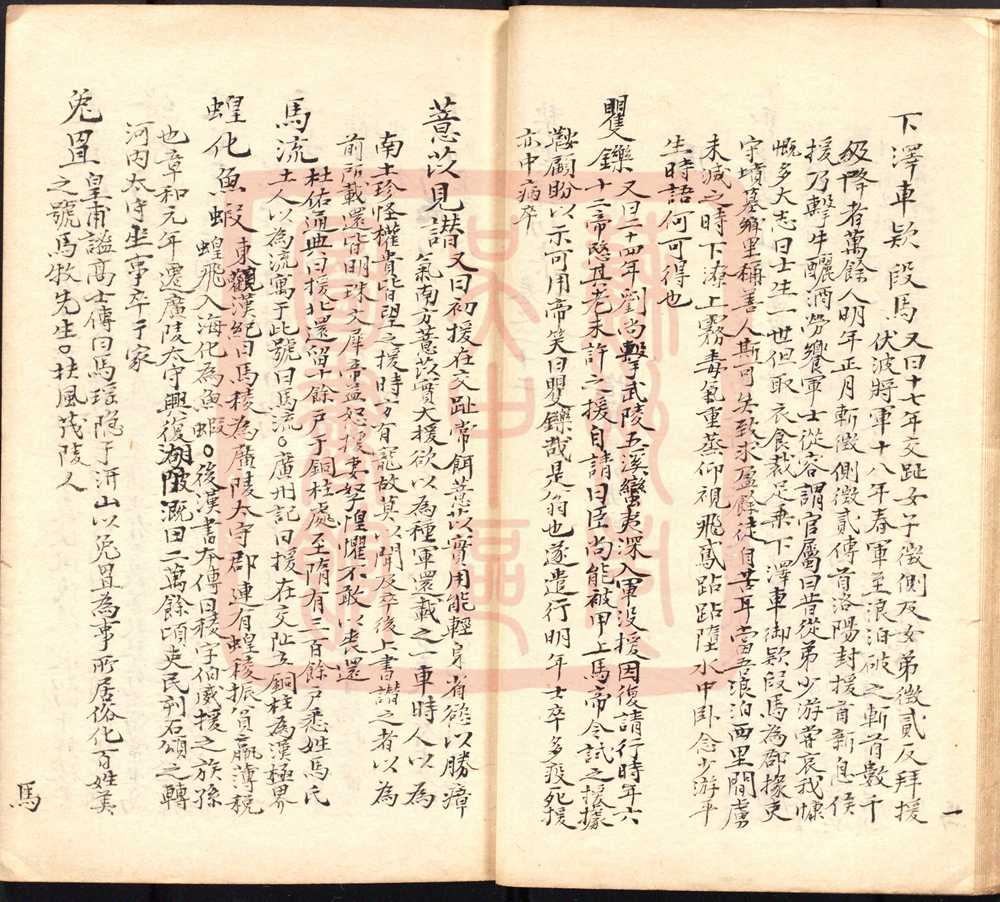 下澤車欵段馬又曰十七年交趾女子徵側及女弟徵貳反拜援
伏波將軍十八年春軍至浪泊破之斬首數千
級降者萬餘人明年正月斬徵側徵貳傳首洛陽封援爲新息侯
援乃擊牛釃酒勞饗軍士從容謂官屬曰昔從弟少游常哀我慷
慨多大志曰士生一世但取衣食裁足乘下澤車御欵段馬為郡掾吏
守墳墓鄉里稱善人斯可矣致求盈餘徒自苦耳當吾浪泊西里間虜
未滅之時下潦上霧毒氣重蒸仰視飛鳶跕跕墮水中卧念少游平
生時語何可得也
矍鑠又曰二十四年劉尚擊武陵五溪蠻夷深入軍没援因復請行時年六
十二帝愍其老未許之援自請曰臣尚能被甲上馬帝令試之援據
鞍顧盼以示可用帝笑曰矍鑠哉是翁也遂遣行明年士卒多疫死援
亦中病卒
薏苡見譛又曰初援在交趾常餌薏苡實用能輕身省慾以勝瘴
氣南方薏苡實大援欲以為種軍還載之一車時人以為
南土珍怪權貴皆望之援時方有寵故莫以聞及卒後上書譛之者以為
前所載還皆明珠文犀帝益怒援妻孥惶懼不敢以喪還
馬流杜佑通典曰援北還留十餘户于銅柱處至隋有三百餘户悉姓馬氏
土人以為流寓于此號曰馬流○廣州記曰援在交阯立銅柱為漢極界
蝗化魚蝦東觀漢紀曰馬稜為廣陵太守郡連有蝗稜振貧羸薄税
蝗飛入海化為魚蝦○後漢書本傳曰稜字伯威援之族孫
也章和元年遷廣陵太守興復湖陂溉田二萬餘頃吏民刋石頌之轉
河内太守坐事卒于家
兎罝皇甫謐髙士傳曰馬瑶隱于汧山以兎罝為事所居俗化百姓美
之號馬牧先生○扶風茂陵人
一
馬